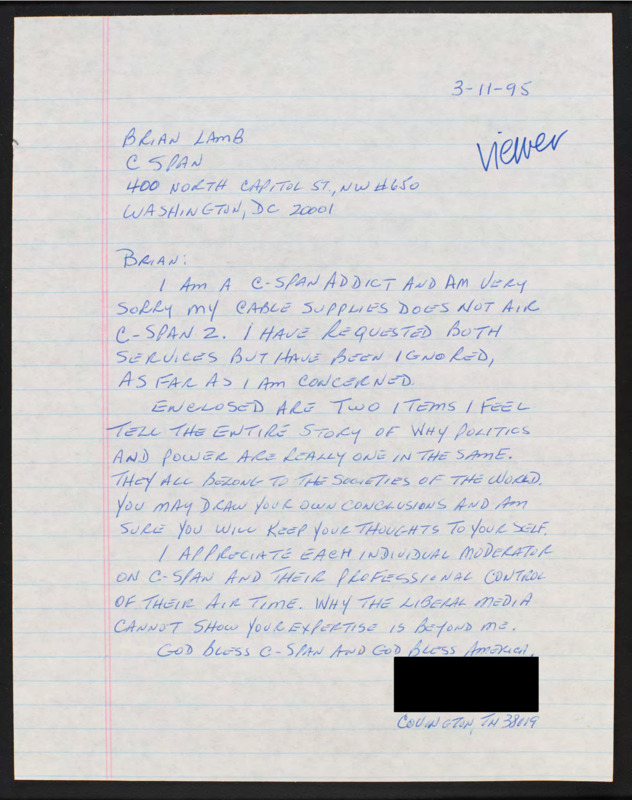 3-11-95
BRIAN LAMB
viewer
C SPAN
400 NORTH CAPITOL ST., NW #650
WASHINGTON, DC 20001
BRIAN:
I AM A C-SPAN ADDICT AND AM VERY
SORRY MY CABLE SUPPLIES DOES NOT AIR
C-SPAN 2. I HAVE REQUESTED BOTH
SERVICES BUT HAVE BEEN IGNORED,
AS FAR AS I AM CONCERNED.
ENCLOSED ARE TWO ITEMS I FEEL
TELL THE ENTIRE STORY OF WHY POLITICS
AND POWER ARE REALLY ONE IN THE SAME.
THEY ALL BELONG TO THE SOCIETIES OF THE WORLD.
YOU MAY DRAW YOUR OWN CONCLUSIONS AND AM
SURE YOU WILL KEEP YOUR THOUGHTS TO YOUR SELF.
I APPRECIATE EACH INDIVIDUAL MODERATOR
ON C-SPAN AND THEIR PROFESSIONAL CONTROL
OF THEIR AIR TIME. WHY THE LIBERAL MEDIA
CANNOT SHOW YOUR EXPERTISE IS BEYOND ME.
GOD BLESS C-SPAN AND GOD BLESS AMERICA.
COVINGTON, TN 38019